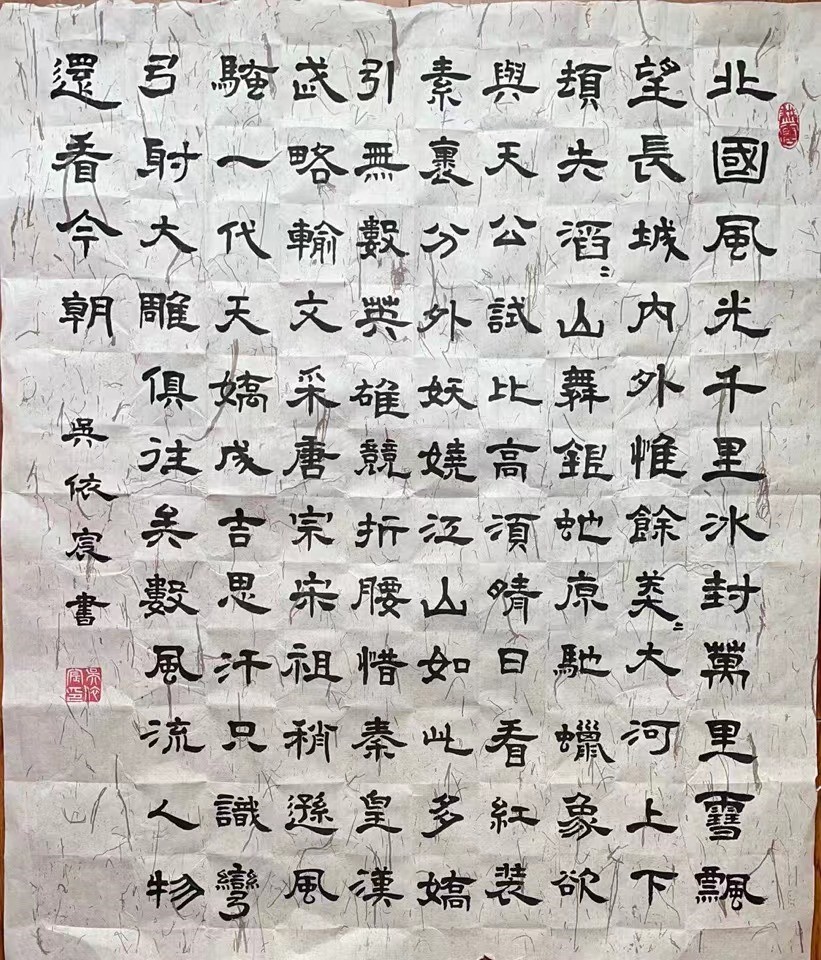 北國風光千里冰封萬里雪飄
望長城內外惟餘莽〻大河上下
頓失滔〻山舞銀虵原馳蠟象欲
與天公試比高須晴日看紅裝
素裹分外妖嬈江山如此多嬌
引無數英雄競折腰惜秦皇漢
武略輸文采唐宗宋祖稍遜風
騷一代天嬌成吉思汗只識彎
弓射大雕俱往矣數風流人物
還看今朝
吳依宸書
吳依宸印